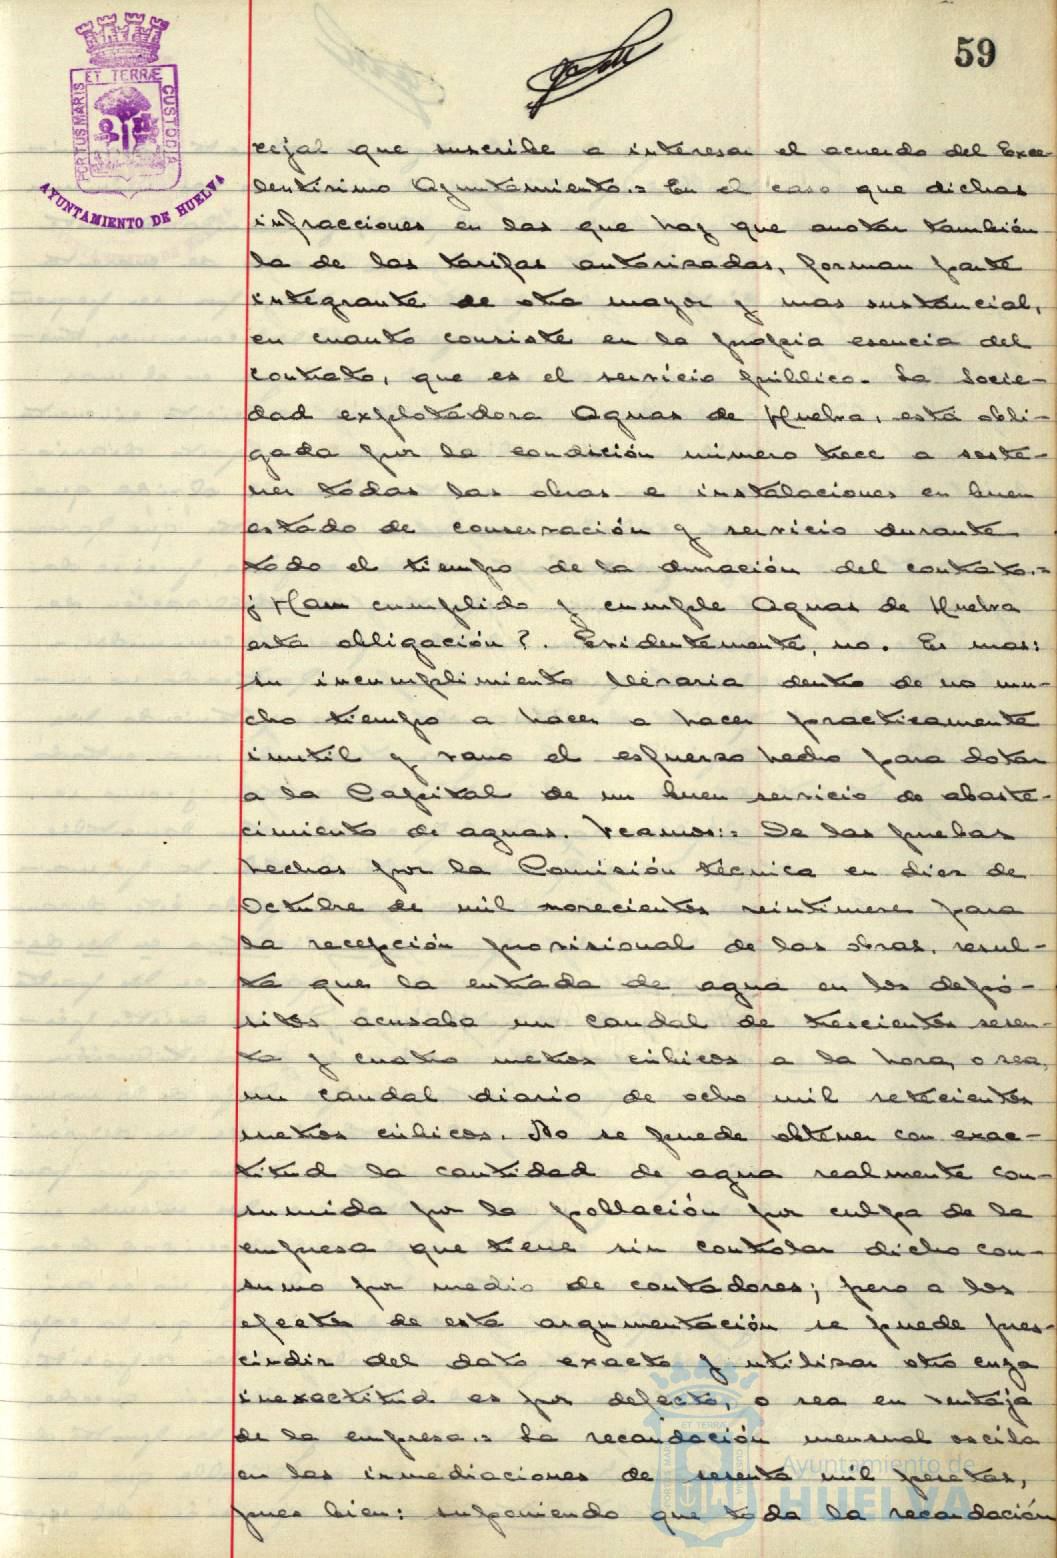 59
ET TERRÆ
PORTUS MARIS
CUSTODIA
AYUNTAMIENTO DE HUELVA
cejal que suscribe a interesar el acuerdo del Exce-
lentisimo Ayuntamiento.= En el caso que dichas
infracciones en las que hay que anotar también
la de las tarifas autorizadas, forman parte
integrante de otra mayor y mas sustancial,
en cuanto consiste en la propia esencia del
contrato, que es el servicio público. La Socie-
dad explotadora Aguas de Huelva, está obli-
gada por la condición número trece a soste-
ner todas las obras e instalaciones en buen
estado de conservación y servicio durante
todo el tiempo de la duración del contrato.=
¿Ham cumplido y cumple Aguas de Huelva
esta obligación?. Evidentemente, no. Es mas:
su incumplimiento llevaria dentro de no mu-
cho tiempo a hacer a hacer practicamente
inutil y vano el esfuerzo hecho para dotar
a la Capital de un buen servicio de abaste-
cimiento de aguas. Veamos:= De las pruebas
hechas por la Comisión técnica en diez de
Octubre de mil novecientos veintinueve para
la recepción provisional de las obras, resul-
ta que la entrada de agua en los depó-
sitos acusaba un caudal de trescientos sesen-
ta y cuatro metros cúbicos a la hora, o sea,
un caudal diario de ocho mil setecientos
metros cúbicos. No se puede obtener con exac-
titud la cantidad de agua realmente con-
sumida por la población por culpa de la
empresa que tiene sin controlar dicho con-
sumo por medio de contadores; pero a los
efectos de esta argumentación se puede pres-
cindir del dato exacto y utilizar otro cuya
inexactitud es por defecto, o sea en ventaja
de la empresa.= La recaudación mensual oscila
en las inmediaciones de sesenta mil pesetas,
pues bien: suponiendo que toda la recaudación
Ayuntamiento de
HUELVA